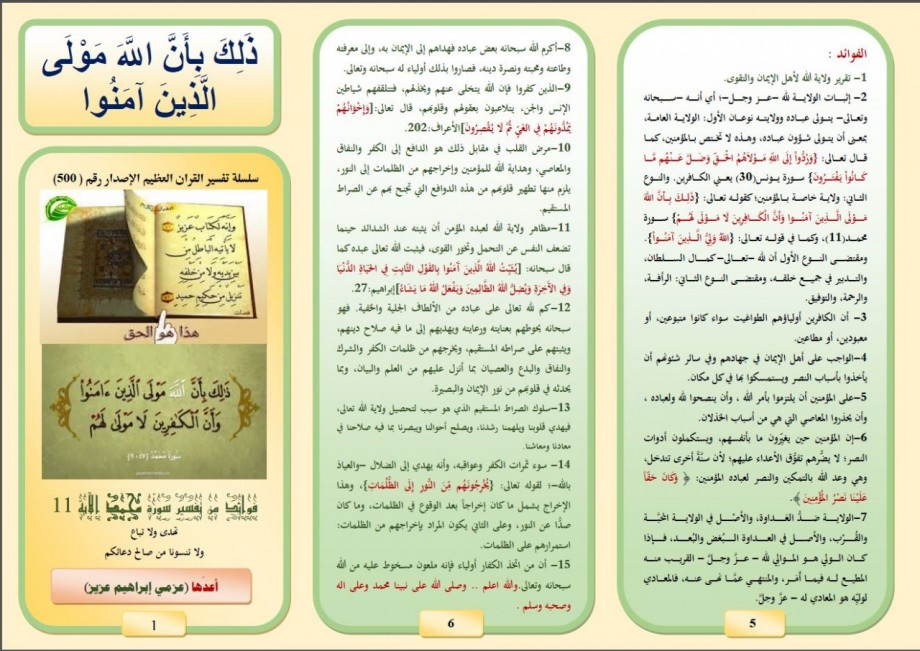 ذَلِكَ بِأَنَّ اللَّهَ مَوْلَى
الَّذِينَ آمَنُوا
سلسلة تفسير القران العظيم الإصدار رقم ( 500)
وإنه لكتاب عزيز
لا يأتيه الباطل من
بين يديه ولا من خلفه
تنزيل من حكيم حميد
فصلت
هذا هو الحق
ذَٰلِكَ بِأَنَّ ٱللَّهَ مَوْلَى ٱلَّذِينَ ءَامَنُوا۟
وَأَنَّ ٱلْكَـٰفِرِينَ لَا مَوْلَىٰ لَهُمْ
فوائد من تفسير سورة محمد الآية 11
تهدى ولا تباع
ولا تنسونا من صالح دعائكم
أعدّها (عزمي إبراهيم عزيز)
1
8–أكرم الله سبحانه بعض عباده فهداهم إلى الإيمان به، وإلى معرفته
وطاعته ومحبته ونصرة دينه، فصاروا بذلك أولياء له سبحانه وتعالى.
9–الذين كفروا فإن الله يتخلى عنهم ويخذلهم، فتتلقفهم شياطين
الإنس والجن، يتلاعبون بعقولهم وقلوبهم، قال تعالى:[وَإِخْوَانُهُمْ
يَمُدُّونَهُمْ فِي الغَيِّ ثُمَّ لَا يُقْصِرُونَ]الأعراف:202.
10–مرض القلب في مقابل ذلك هو الدافع إلى الكفر والنفاق
والمعاصي، وهداية الله للمؤمنين وإخراجهم من الظلمات إلى النور،
يلزم منها تطهير قلوبهم من هذه الدوافع التي تجنح بهم عن الصراط
المستقيم.
11–مظاهر ولاية الله لعبده المؤمن أن يثبته عند الشدائد حينما
تضعف النفس عن التحمل وتخور القوى، فيثبت الله تعالى عبده كما
قال سبحانه: [يُثَبِّتُ اللهُ الَّذِينَ آَمَنُوا بِالقَوْلِ الثَّابِتِ فِي الحَيَاةِ الدُّنْيَا
وَفِي الآَخِرَةِ وَيُضِلُّ اللهُ الظَّالِمِينَ وَيَفْعَلُ اللهُ مَا يَشَاءُ]إبراهيم:27.
12–كم لله تعالى على عباده من الألطاف الجلية والخفية. فهو
سبحانه يحوطهم بعنايته ورعايته ويهديهم إلى ما فيه صلاح دينهم،
ويثبتهم على صراطه المستقيم، ويخرجهم من ظلمات الكفر والشرك
والنفاق والبدع والعصيان بما أنزل عليهم من العلم والبيان، وبما
يحدثه في قلوبهم من نور الإيمان والبصيرة.
13–سلوك الصراط المستقيم الذي هو سبب لتحصيل ولاية الله تعالى،
فيهدي قلوبنا ويلهمنا رشدنا، ويصلح أحوالنا ويبصرنا بما فيه صلاحنا في
معادنا ومعاشنا.
14– سوء ثمرات الكفر وعواقبه، وأنه يهدي إلى الضلال –والعياذ
بالله–؛ لقوله تعالى: {يُخْرِجُونَهُم مِّنَ النُّورِ إِلَى الظُّلُمَاتِ}، وهذا
الإخراج يشمل ما كان إخراجاً بعد الوقوع في الظلمات، وما كان
صدًّا عن النور، وعلى الثاني يكون المراد بإخراجهم من الظلمات:
استمرارهم على الظلمات.
15– أن من اتخذ الكفار أولياء فإنه ملعون مسخوط عليه من الله
سبحانه وتعالى.والله اعلم .. وصلى الله على نبينا محمد وعلى اله
وصحبه وسلم .
6
الفوائد :
1– تقرير ولاية الله لأهل الإيمان والتقوى.
2– إثبات الولاية لله –عز وجل–؛ أي أنه –سبحانه
وتعالى– يتولى عباده وولايته نوعان الأول: الولاية العامة،
بمعنى أن يتولى شؤون عباده، وهذه لا تختص بالمؤمنين، كما
قال تعالى: {وَرُدُّواْ إِلَى اللهِ مَوْلاَهُمُ الْحَقِّ وَضَلَّ عَنْهُم مَّا
كَانُواْ يَفْتَرُونَ} سورة يونس(30) يعني الكافرين. والنوع
الثاني: ولاية خاصة بالمؤمنين؛ كقوله تعالى: {ذَلِكَ بِأَنَّ اللهَ
مَوْلَى الَّذِينَ آمَنُوا وَأَنَّ الْكَافِرِينَ لَا مَوْلَى لَهُمْ} سورة
محمد(11)، وكما في قوله تعالى: {اللهُ وَلِيُّ الَّذِينَ آمَنُواْ}.
ومقتضى النوع الأول أن لله –تعالى–كمال السلطان،
والتدبير في جميع خلقه، ومقتضى النوع الثاني: الرأفة،
والرحمة، والتوفيق.
3– أن الكافرين أولياؤهم الطواغيت سواء كانوا متبوعين، أو
معبودين، أو مطاعين.
4–الواجب على أهل الإيمان في جهادهم وفي سائر شئونهم أن
يأخذوا بأسباب النصر ويستمسكوا بها في كل مكان.
5–على المؤمنين أن يلتزموا بأمر الله ، وأن ينصحوا لله ولعباده ،
وأن يحذروا المعاصي التي هي من أسباب الخذلان.
6–إن المؤمنين حين يغيّرون ما بأنفسهم، ويستكملون أدوات
النصر؛ لا يضُرهم تفوّق الأعداء عليهم؛ لأن سنَّةً أخرى تتدخل،
وهي وعد الله بالتمكين والنصر لعباده المؤمنين: ﴿ وَكَانَ حَقًّا
عَلَيْنَا نَصْرُ الْمُؤْمِنِينَ ﴾.
7–الولاية ضدُّ العَداوة، والأصْل في الولاية المحبَّة
والقُرْب، والأصل في العداوة البُغض والبُعد، فإذا
كان الولي هو الموالي لله – عزَّ وجلَّ– القريب منه
المطيع له فيما أمَر، والمنتهي عمَّا نهى عنه، فالمعادي
لوليِّه هو المعادي له – عزَّ وجلَّ.
5